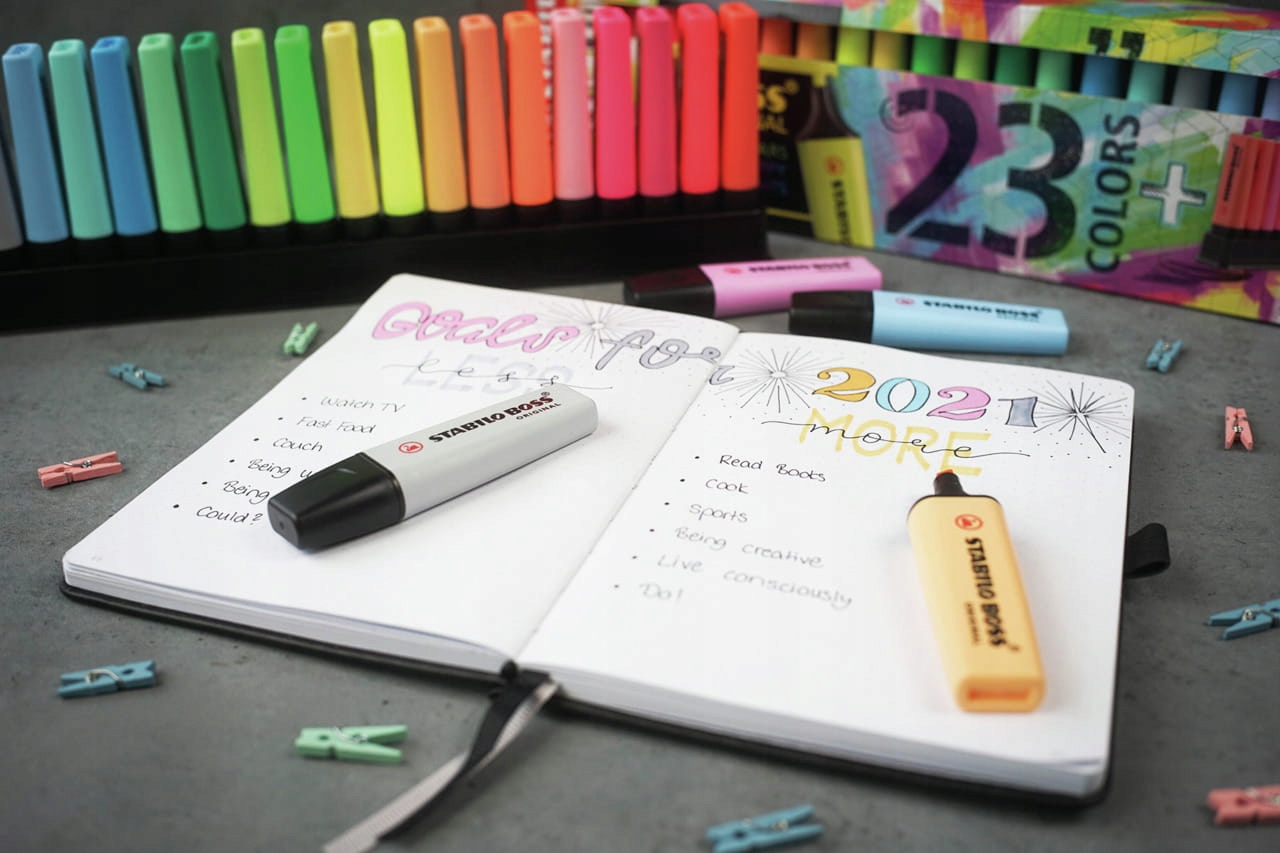 23
COLORS
+
STABILO
STABILO BOSS
STABILO BOSS
Goals for 2021
LESS
less
Watch TV
Fast Food
Couch
Being
Being
Could?
STABILO BOSS
ORIGINAL
MORE
more
Read Books
Cook
Sports
Being creative
Live consciously
Do!
STABILO BOSS
ORIGINAL